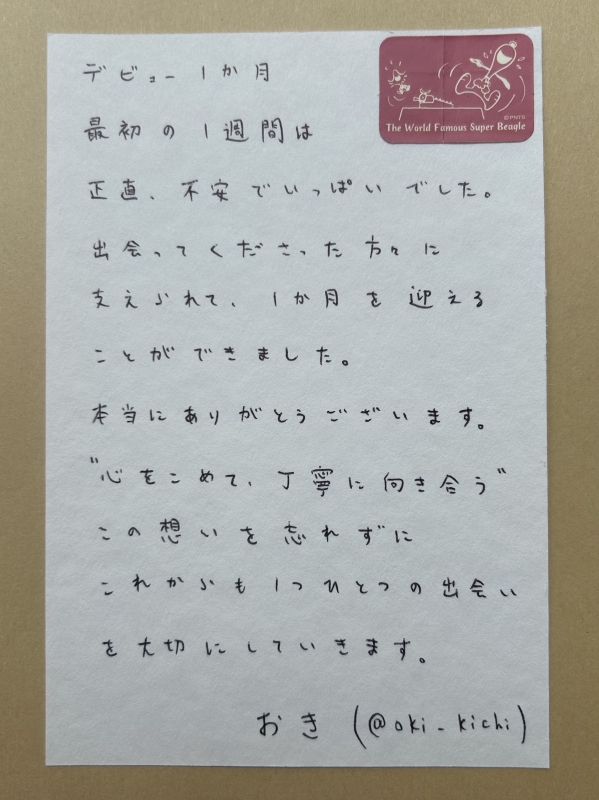 デビュー1か月
最初の1週間は
正直、不安でいっぱいでした。
出会ってくださった方々に
支えられて、1か月を迎える
ことができました。
本当にありがとうございます。
"心をこめて、丁寧に向き合う"
この想いを忘れずに
これからも1つひとつの出会い
を大切にしていきます。
おき (@oki_kichi)
©PNTS
The World Famous Super Beagle